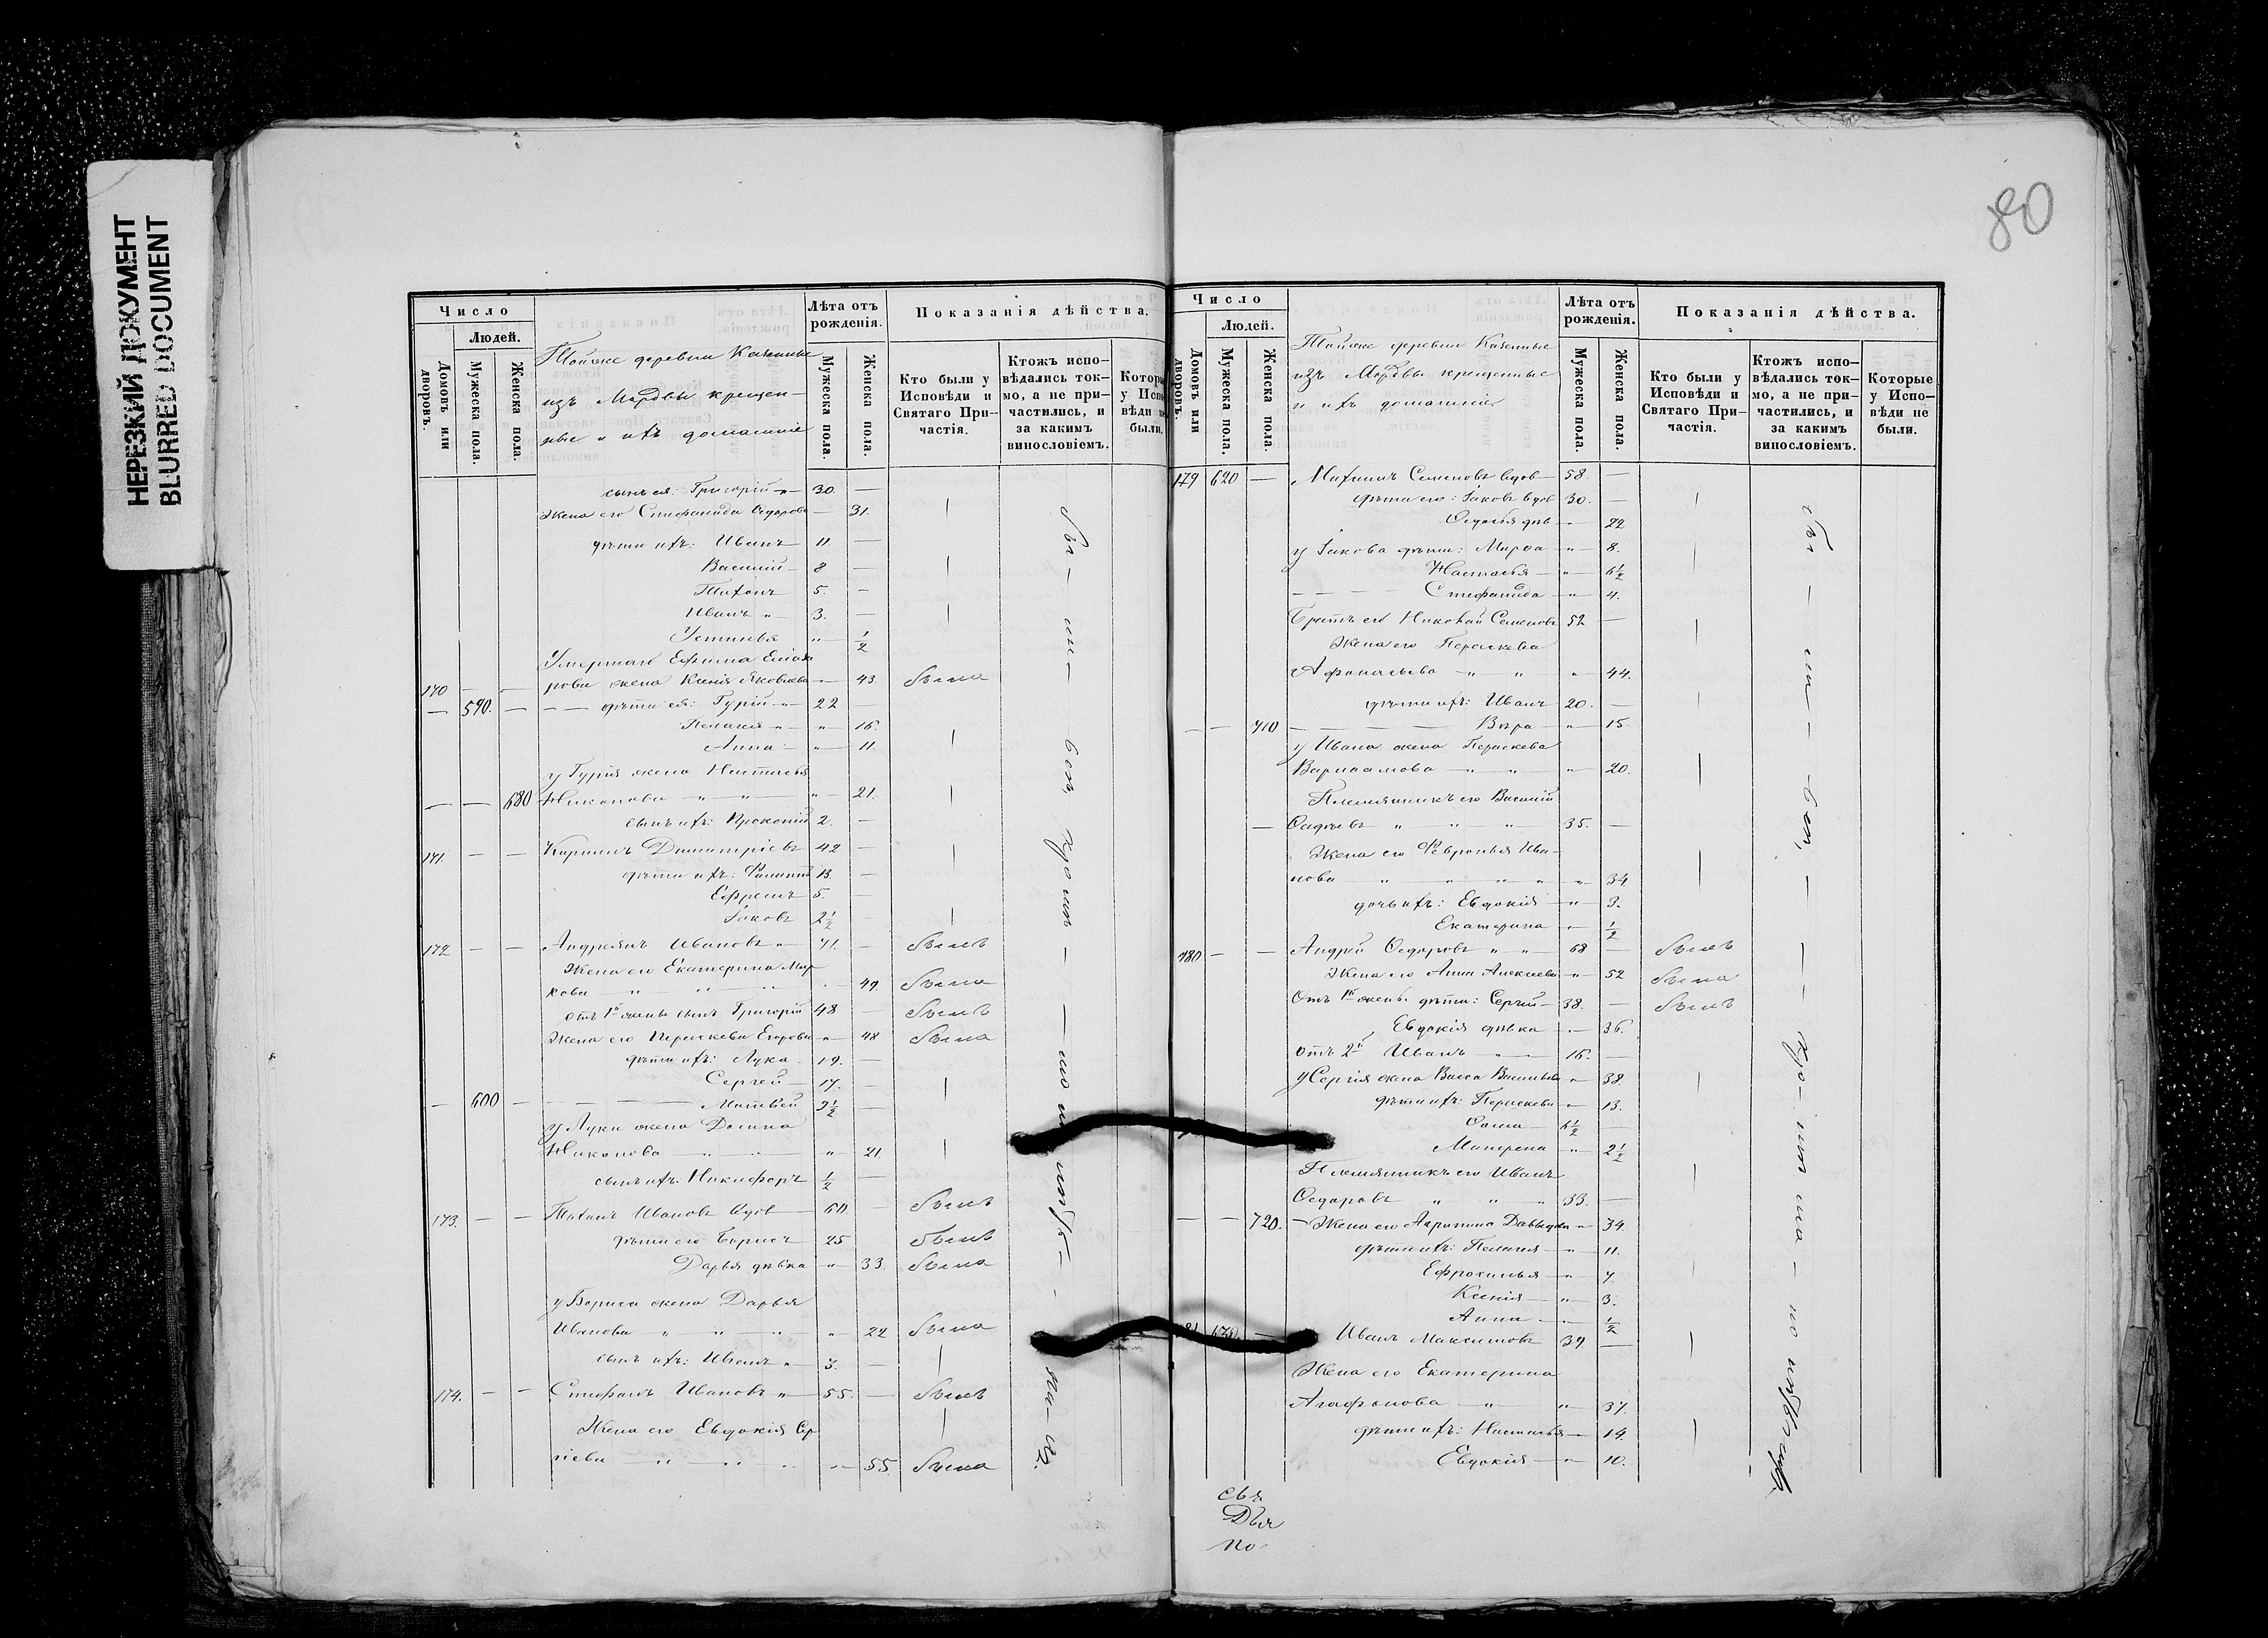 НЕРЕЗКИЙ ДОКУМЕНТ
BLURRED DOCUMENT
Число
Людей.
Домовъ или дворовъ.
Мужеска пола.
Женска пола.
Тойже деревни Казенные
изъ Мордвы крещен-
ные и ихъ домашніе
Лѣта отъ рожденія.
Мужеска пола.
Женска пола.
Показанія дѣйства.
Кто были у Исповѣди и Святаго При-частія.
Ктожъ испо-вѣдались ток-мо, а не при-частились, и за какимъ винословіемъ.
Которые у Испо-вѣди не были.
сынъ ея: Григорій 30. —
Жена его Стефанида Ѳедорова — 31.
дѣти ихъ: Иванъ 11. —
Василій — 8 —
Тихонъ 5. —
Иванъ 3. —
Устинья 1/2
Умершаго Ефима
170 — — жена Ксенія Яковлева — 43 была
— 590. — — — дѣти ея: Гурій 22 —
Пелагея 16.
Анна — 11.
у Гурія жена Настасья
— — 680 Никонова 21.
сынъ ихъ: Прокопій 2. —
171. — — Кириллъ Димитріевъ 42 —
дѣти ихъ: Филиппъ 13. —
Ефремъ 5. —
Іаковъ 2 1/2
172 — — Андреянъ Ивановъ 71. — былъ
Жена его Екатерина Мар
кова 49. была
отъ 1й жены сынъ Григорій 48 — былъ
Жена его Перескева Егорова 48 была
дѣти ихъ: Лука 19. —
Сергей — 17. —
— 600 — Матвей 9 1/2 —
у Луки жена Домна
Никонова 21.
сынъ ихъ: Никифоръ 1/2 —
173. — — Тихонъ Ивановъ вдов 60. — былъ
дѣти его Борисъ 25 былъ
Дарья дѣвка 33. была
у Бориса жена Дарья
Иванова 22 была
сынъ ихъ: Иванъ 3. —
174. — — Стефанъ Ивановъ 55. — былъ
Жена его Евдокія Сер
гіева 55. была
80
Число
Людей.
Домовъ или дворовъ.
Мужеска пола.
Женска пола.
Тойже деревни Казенные
изъ Мордвы крещенные
и ихъ домашніе
Лѣта отъ рожденія.
Мужеска пола.
Женска пола.
Показанія дѣйства.
Кто были у Исповѣди и Святаго При-частія.
Ктожъ испо-вѣдались ток-мо, а не при-частились, и за какимъ винословіемъ.
Которые у Испо-вѣди не были.
179 620 — Михаилъ Семеновъ вдов 58. —
дѣти его: Іаковъ вдов 30. —
Ѳедосья дѣв 22
у Іакова дѣти: Марѳа 8.
Настасья 6 1/2
Стефанида 4.
Братъ его Николай Семеновъ 52 —
Жена его Перескева
Афонасьева 44.
дѣти ихъ: Иванъ 20. —
— — 710 Вѣра 15.
у Ивана жена Перескева
Варламова 20.
Племянникъ его Василій
— 35. —
Жена его Февронья Ива-
нова 34
дочь ихъ: Евдокія 9.
Екатерина 1/2
180 — — Андрей Ѳедоровъ 68 — былъ
Жена его Анна Алексеева 52 была
Отъ 1й жены дѣти: Сергій 38. — былъ
Евдокія дѣвка 36.
отъ 2й Иванъ 16. —
у Сергія жена Васса Васильева 38.
дѣти ихъ: Перескева 13.
Ѳома 6 1/2 —
Матрена 2 1/2
Племянникъ его Иванъ
Ѳедоровъ 33. —
— — 720. Жена его Агрипина Давыдова 34.
дѣти ихъ: Пелагея 11.
Ефросинья 7.
Ксенія 3.
Анна 1/2
Иванъ Максимовъ 39. —
Жена его Екатерина
Агафонова 37.
дѣти ихъ: Настасья 14.
Евдокія 10.